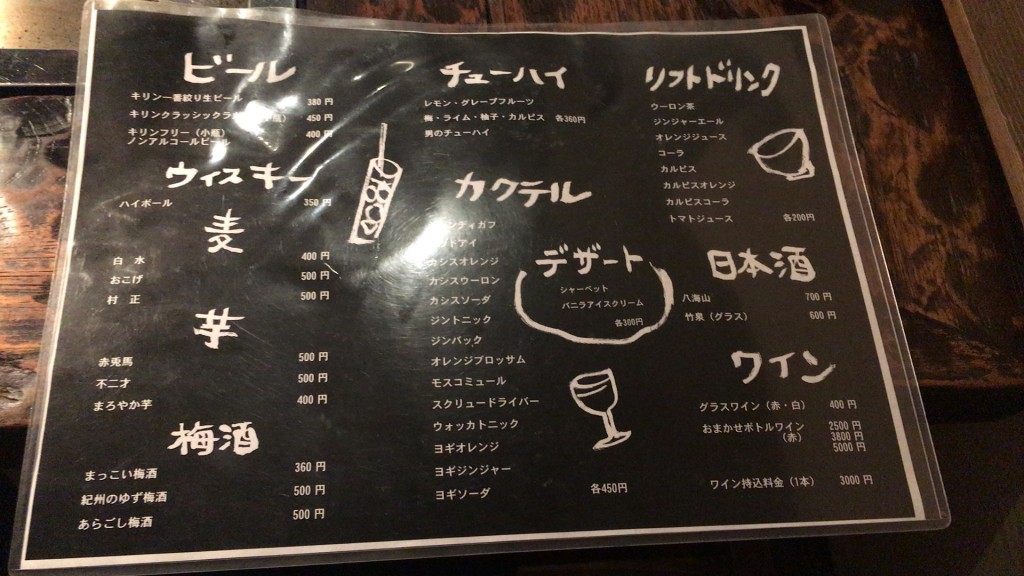 ビール
キリン一番絞り生ビール 380円
キリンクラッシックラ 450円
キリンフリー（小瓶） 400円
ノンアルコールビール
ウィスキー
ハイボール 350円
麦
白 水 400円
おこげ 500円
村 正 500円
芋
赤兎馬 500円
不二才 500円
まろやか芋 400円
梅酒
まっこい梅酒 360円
紀州のゆず梅酒 500円
あらごし梅酒 500円
チューハイ
レモン・グレープフルーツ
梅・ライム・柚子・カルピス 各360円
男のチューハイ
カクテル
ティガフ
ドアイ
カシスオレンジ
カシスウーロン
カシスソーダ
ジントニック
ジンバック
オレンジブロッサム
モスコミュール
スクリュードライバー
ウォッカトニック
ヨギオレンジ
ヨギジンジャー
ヨギソーダ 各450円
デザート
シャーベット
バニラアイスクリーム
各300円
ソフトドリンク
ウーロン茶
ジンジャーエール
オレンジジュース
コーラ
カルピス
カルピスオレンジ
カルピスコーラ
トマトジュース 各200円
日本酒
八海山 700円
竹泉（グラス） 600円
ワイン
グラスワイン（赤・白） 400円
おまかせボトルワイン 2500円
（赤） 3800円
5000円
ワイン持込料金（1本） 3000円